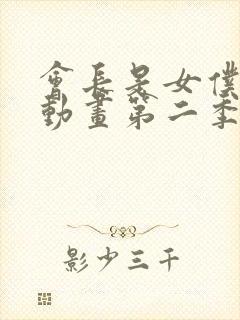 會長是女僕
動畫第二季
影少三千